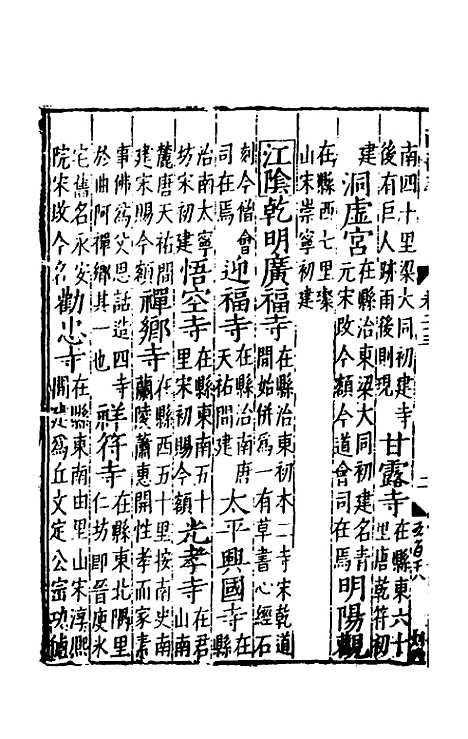 南四十里梁大同初建寺
後有巨人跡雨後則現
甘露寺
在縣東六十
里唐乾符初
建
洞虛宮
在縣治東梁大同初建名青
元宋改今額今道會司在焉
明陽觀
在縣西七里梁
山宋崇寧初建
江陰乾明廣福寺
在縣治東初本二寺宋乾道
間始併為一有草書心經石
刻今僧會
司在焉
迎福寺
在縣治南唐
天祐間建
太平興國寺
在縣
治南太寧
坊宋初建
悟空寺
在縣東南五十
里宋初賜今額
光孝寺
在君
山南
麓唐天祐間
建宋賜今額
禪鄉寺
在縣西五十里按南史南
蘭陵蕭惠開性孝而家素
事佛為父思話造四寺
於曲阿禪鄉其一也
祥符寺
在縣東北隅里
仁坊即晉庾氷
宅舊名永安
院宋改今名
勸忠寺
在縣東南由里山宋淳熙
間建為丘文定公崈功德